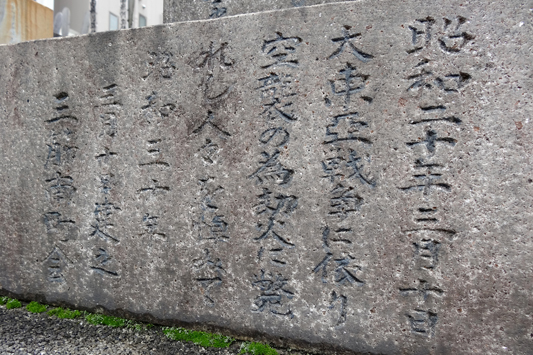 昭和二十年三月十日
大東亞戦争に依り
空襲の為劫火に斃
れし人々を悼みて
昭和三十年
三月十日建之
三筋南町会